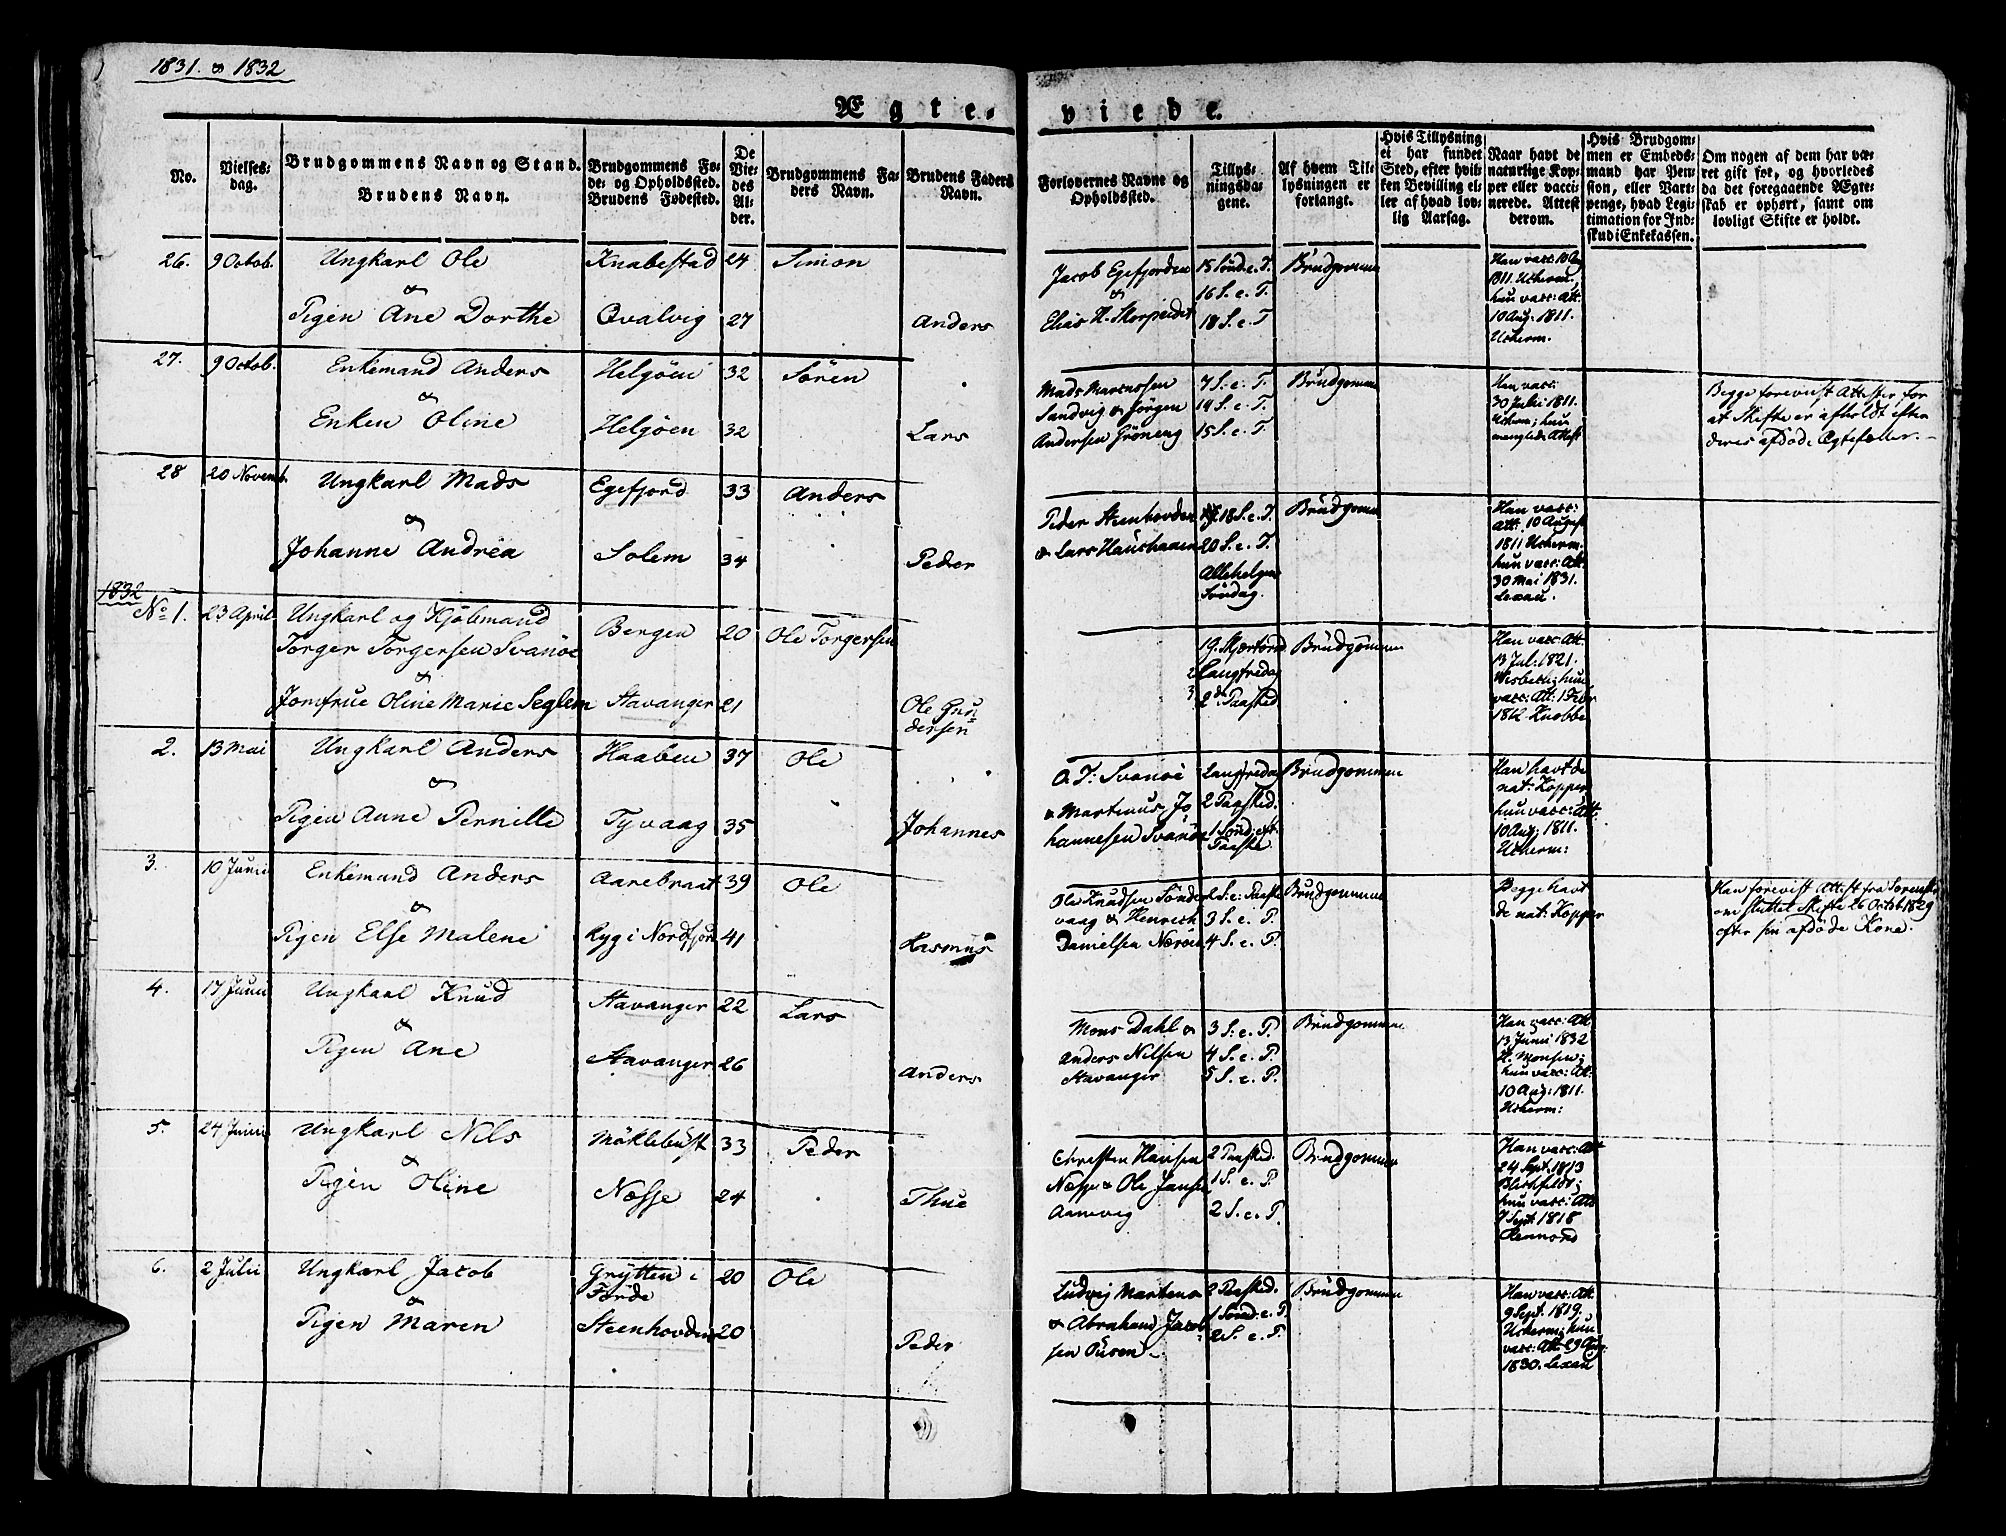 1831. & 1832
Ægteviede.
No.
Vielsesdag.
Brudgommens Navn og Stand.
Brudens Navn.
Brudgommens Føde- og Opholdssted.
Brudens Fødested.
De Viedes Alder.
Brudgommens Faders Navn.
Brudens Faders Navn.
Forlovernes Navne og Opholdssted.
Tillysningsdagene.
Af hvem Tillysningen er forlangt.
Hvis Tillysning ei har fundet Sted, efter hvilken Bevilling eller af hvad lovlig Aarsag.
Naar havt de naturlige Kopper eller vaccinerede. Attest derom.
Hvis Brudgommen er Embedsmand har Pension, eller Vartpenge, hvad Legitimation for Indskud i Enkekassen.
Om nogen af dem har været gift før, og hvorledes da det foregaaende Ægteskab er ophørt, samt om lovligt Skifte er holdt.
26. 9 Octob. Ungkarl Ole Knabestad 24 Simon
&
Pigen Ane Dorthe Qvalvig 27 Anders
Jacob Egefjorden
&
Elias H.
15 Sønd. e. T.
16 S. e. T.
18 S. e. T
Brudgommen
Han vacc: 10 Aug
1811. Ucherm.
hun vacc: Att.
10 Aug. 1811.
Ucherm.
27. 9 Octob. Enkemand Anders Helgöen 32 Sören
&
Enken Oline Helgöen 32 Lars
Mads Martenssen
Sandvig & Jörgen
Andersen Gröneng
7 S. e. T.
14 S. e. T.
15 S. e. T.
Brudgommen
Han vacc:
30 Juli 1811.
Ucherm; hun
manglede Attest
Begge foreviist Attester for
at Skifte er afholdt efter
deres afdöde Ægtefæller.
28 20 Novemb. Ungkarl Mads Egefjord 33 Anders
&
Johanne Andrea Solem 34 Peder
Peder Steenhovden
& Lars
18 S. e. T.
20 S. e. T.
Allehelgen
Söndag.
Brudgommen
Han vacc:
Att. 10 August
1811 Ucherm.
hun vacc: Att.
30 Mai 1831.
Lexau.
1832
No 1. 23 April Ungkarl og Kjöbmand
Torger Torgersen Svanöe Bergen 20 Ole Torgersen
&
Jomfrue Oline Marie Seglem Stavanger 21 Ole Gundersen
Skjærtorsd
2 Langfredag
3 2den Paasked.
Brudgommen
Han vacc: Att
13 Jul: 1821.
hun
vacc: Att: 1 Febr
1812 Knobbe
2. 13 Mai Ungkarl Anders Haaben 37 Ole
&
Pigen Anne Pernille Tyvaag 35 Johannes
O. T: Svanöe
& Martinus Jo
hannesen Svanöe
Langfredag
2 Paasked.
1 Sönd: eft.
Paaske.
Brudgommen
Han havt de
nat: Kopper,
hun vacc: Att
10 Aug: 1811.
Ucherm:
3. 10 Junii Enkemand Anders Aarebraat 39 Ole
&
Pigen Else Malene Ryg i Nordfjor 41 Rasmus
Ole Knudsen Sönde
vaag & Henrich
Danielsen Næröe
2 S. e. Paaske
3 S. e. P.
4 S. e. P.
Brudgommen
Begge havt
de nat: Kopper
Han foreviist Attest fra
om sluttet Skifte 26 Octob. 1829
efter sin afdöde Kone.
4. 17 Junii Ungkarl Knud Stavanger 22 Lars
&
Pigen Ane Stavanger 26 Anders
Mons Dahl &
Anders Nilsen
Stavanger
3 S. e. P.
4 S. e. P.
5 S. e. P.
Brudgommen
Han vacc: Att
13 Junii 1832
H. Monsen;
hun vacc: Att:
10 Aug: 1811.
Ucherm:
5. 24 Junii Ungkarl Nils Möklebust 33 Peder
&
Pigen Oline Næsse 24 Thue
Christen Hansen
Næsse & Ole Jansen
Aamevig
2 Paasked.
1 S. e. P.
2 S. e. P.
Brudgommen
Han vacc: Att
24 Sept. 1813
hun vacc: Att
7 Sept 1818
6. 2 Julii Ungkarl Jacob Grytten i Förde 20 Ole
&
Pigen Maren Steenhovden 20 Peder
Ludvig Martens
& Abraham Jacob
sen
2 Paasked.
1 Sönd. e. P
2 S. e. P.
Brudgommen
Han vacc: Att
9 Sept. 1819.
Ucherm; hun
vacc: Att 29 Aug
1830. Lexau